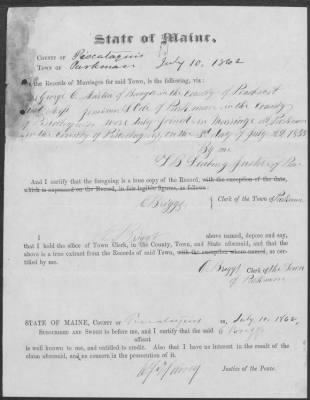 State of Maine.
COUNTY OF Piscataquis
TOWN OF Parkman July 10, 1862
the Records of Marriages for said Town, is the following, viz:
George C. of in the County of Penobscot
and Miss Cole of Parkman in the County
of Piscataquis were duly joined in marriage at Parkman
in the County of Piscataquis, on the
By me
Justice of Peace
And I certify that the foregoing is a true copy of the Record, with the exception of the date,
which is expressed on the Record, in fair legible figures, as follows:
C Briggs Clerk of the Town of Parkman
I, C Briggs above named, depose and say,
that I hold the office of Town Clerk, in the County, Town, and State aforesaid, and that the
above is a true extract from the Records of said Town, with the exception above named, as
certified by me.
C Briggs Clerk of the Town
of Parkman
STATE OF MAINE, COUNTY OF Piscataquis ss, July 10, 1862,
SUBSCRIBED AND SWORN to before me, and I certify that the said C Briggs
affiant
is well known to me, and entitled to credit. Also that I have no interest in the result of the
claim aforesaid, and no concern in the prosecution of it.
Justice of the Peace.